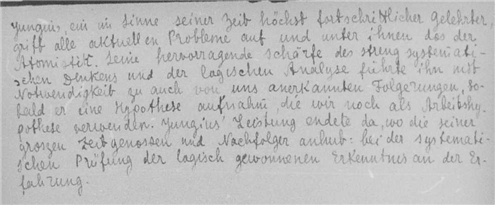 Jungius, ein im Sinne seiner Zeit höchst fortschrittlicher Gelehrter
griff alle aktuellen Probleme auf und unter ihnen das der
Atomistik. Seine hervorragende Schärfe des streng systemati-
schen Denkens und der logischen Analyse führte ihn mit
Notwendigkeit zu auch von uns anerkannten Folgerungen, so-
bald er eine Hypothese aufnahm, die wir noch als Arbeitshy-
pothese verwenden. Jungius' Leistung endete da, wo die seiner
grossen Zeitgenossen und Nachfolger anhub: bei der systemati-
schen Prüfung der logisch gewonnenen Erkenntnis an der Er-
fahrung.